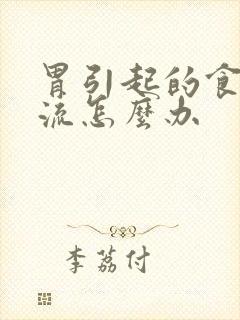 胃引起的食
流怎麼办
李荔付